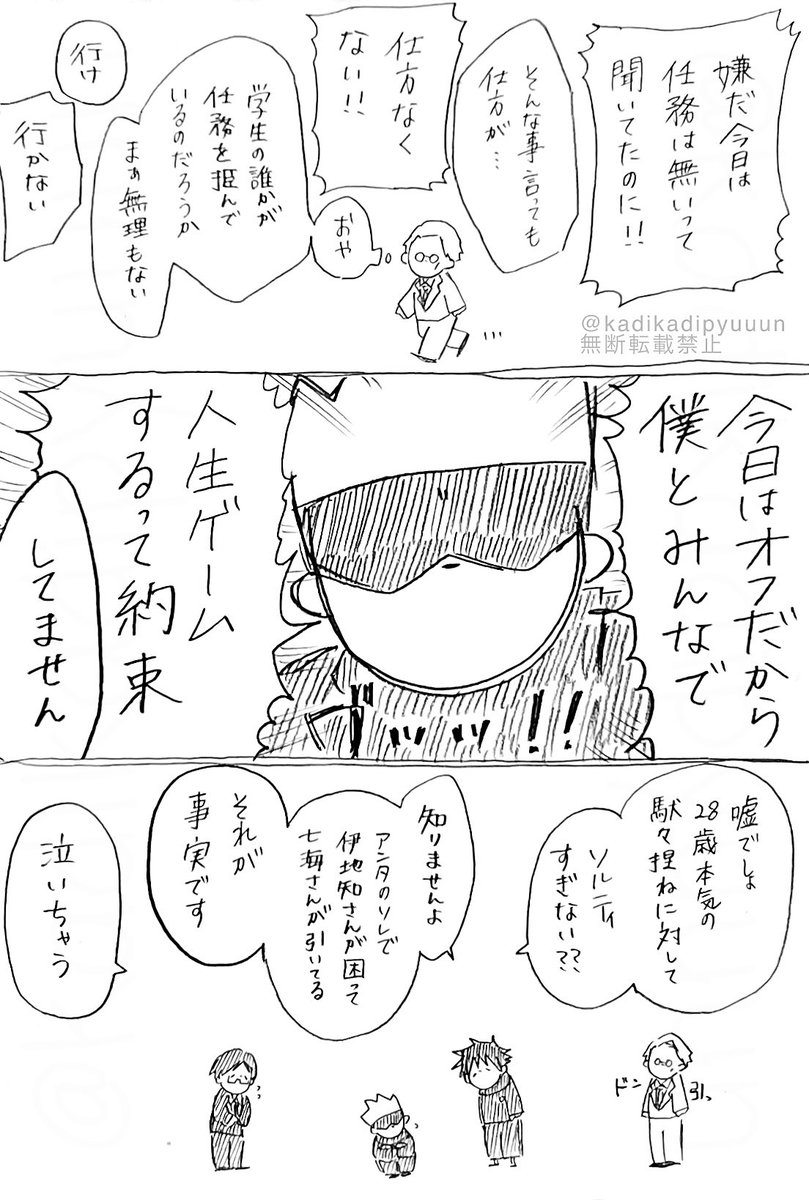 嫌だ今日は
任務は無いって
聞いてたのに!!
そんな事言っても
仕方が…
仕方なく
ない!!
おや
学生の誰かが
任務を拒んで
いるのだろうか
まぁ無理もない
行け
行かない
@kadikadipyuuun
無断転載禁止
今日はオフだから
僕とみんなで
人生ゲーム
するって約束
してません
嘘でしょ
28歳本気の
駄々捏ねに対して
ソルティ
すぎない??
知りませんよ
アンタのソレで
伊地知さんが困って
七海さんが引いてる
それが
事実です
泣いちゃう
ドン
引っ